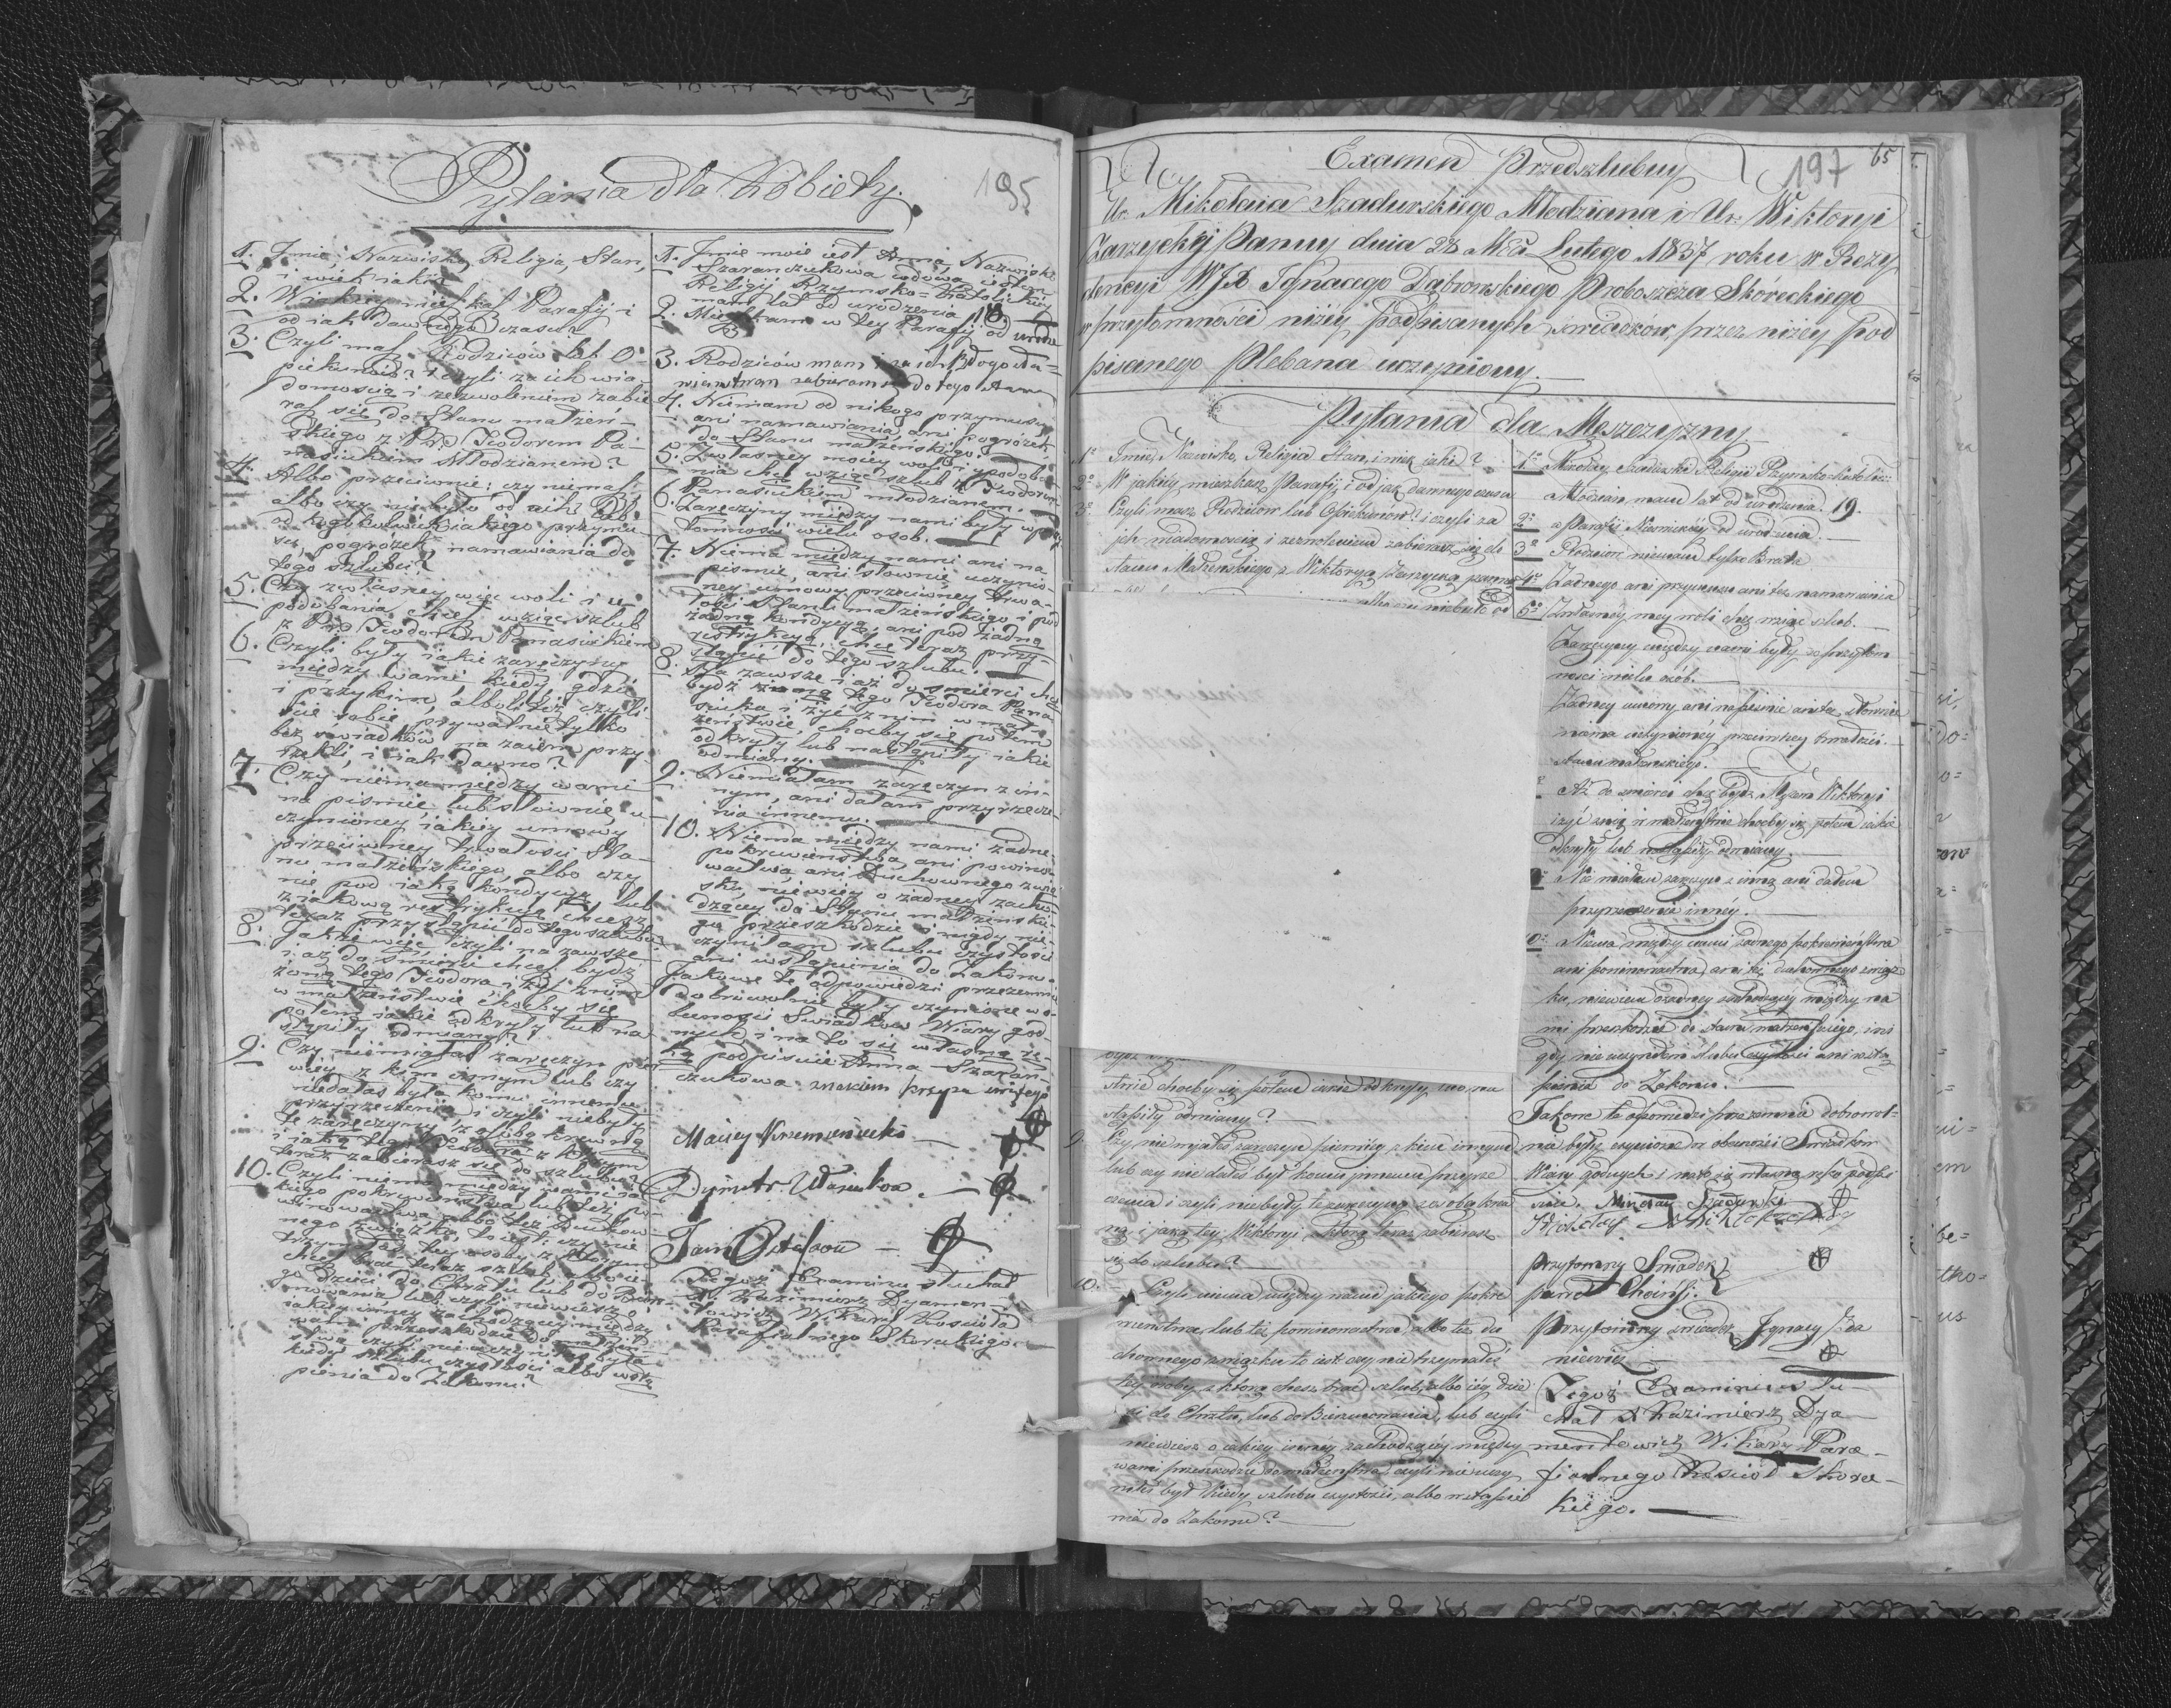 Pytania dla Kobiety.
195
1. Imie, Nazwisko, Religia, Stan,
i wiek iaki?
2. W iakiey mieszkasz Parafij i
od iak dawnego czasu?
3. Czyli masz Rodziców lub O-
piekunów? i czyli za ich wia-
domością i zezwoleniem zabie-
rasz się do Stanu małżeń-
skiego z Teodorem Pa-
nasiukiem Młodzianem?
4. Albo przeciwnie: czy niemasz
albo czy niebyło od nich lub
od kogokolwiek iakiego przymu-
su, pogróżek, namawiania do
tego szlubu?
5. Czy z własney więc woli i u-
podobania chcesz wziąć szlub
z Teodorem Panasiukiem
6. Czyli były iakie zaręczyny
między wami, kiedy, gdzie
i przykim, albo li też czyli-
ście sobie prywatnie tylko
bez swiadków na zaiem przy-
rzekli, i iak dawno?
7. Czy niema między wami
na pismie, lub słownie, u-
czynioney iakiey umowy
przeciwney trwałości Sta-
nu małżeńskiego, albo czy
nie pod iaką kondycyą, lub
z iakową restrykcyą chcesz
teraz przystąpić do tego szlubu
8. Jakże więc czyli na zawsze
i aż do śmierci chcesz bydź
żoną tego Teodora i żyć z nim
w małżeństwie choćby się
potem iakie odkryły lub na-
stąpiły odmiany?
9. Czy niemiałaś zaręczyn pier
wiey z kim innym lub czy
niedałaś była komu innemu
przyrzeczenia i czyli niebyły
te zaręczyny z osobą krewną
i iaką tego Teodora z którym
teraz zabierasz się do szlubu?
10. Czyli niema między wami ia-
kiego pokrewieństwa lub też po-
winowactwa albo też Duchow-
nego związku, to iest: czy nie
trzymałaś tey osoby z którym
chcesz brać teraz szlub albo ie-
go dzieci do Chrztu lub do Bierz-
mowania lub czyli niewiesz o
iakiey inney zachodzącey między
wami przeszkodzie do małżeń-
stwa czyli nieuczyniłaś była
kiedy szlubu czystości albo wstą
pienia do Zakonu?
1. Imie moie iest Anna, Nazwisko
Szaranczukowa wdowa
Religij Rzymsko=Katolickiey
mam lat od urodzenia
2. Mieszkam w tey Parafij od urodze
3. Rodziców mam
zabieram się do tego stanu
4. Niemam od nikogo przymusu
ani namawiania ani pogróżek
do Stanu małżeńskiego.
5. Z własney moiey woli i upodoba-
nia chcę wziąć szlub z Teodorem
Panasiukiem młodzianem.
6. Zaręczyny między nami były w przy
tomności wielu osob.
7. Niema między nami ani na
pismie, ani słownie uczynio-
ney umowy przeciwney trwa-
łości Stanu małżeńskiego i pod
żadną kondycyą, ani pod żadną
restrykcyą chcę teraz przy-
stąpić do tego szlubu.
8. Na zawsze i aż do śmierci chcę
bydź żoną tego Teodora Pana-
siuka i żyć z nim w mał-
żeństwie, choćby się potem
odkryły lub nastąpiły iakie
odmiany.
9. Niemiałam zaręczyn z in-
nym, ani dałam przyrzecze-
nia innemu.
10. Niema między nami żadne-
go pokrewieństwa ani powino-
wactwa ani Duchownego związ
sku, niewiem o żadney zacho-
dzącey do Stanu małżeńskie-
go przeszkodzie i nigdy nie-
czyniłam szlubu czystości
ani wstąpienia do Zakonu.
Jakowe te odpowiedzi przezemnie
dobrowolnie były uczynione w o-
becności Swiadków Wiary god-
nych i na to się własną rę-
ką podpisuię Anna Szaran-
czukowa znakiem krzyża świętego
Maciey Krzemieniecki
Dymitr Wasiuk
Jan Ostapow
Tegoż Examinu słuchał
X Kazimierz Dyamen-
towicz Wikary Kościoła
Parafialnego Skoreckiego.
65
197
Examen Przedszlubny
Ur. Mikołaia Szadurskiego Młodziana i Ur. Wiktoryi
Zarzyckiéj Panny dnia 28 Mca Lutego 1837 roku w Rezy
dencyi WJX Ignacego Dąbrowskiego Proboszcza Skóreckiego
w przytomności niżéy podpisanych swiadków, przez niżéy pod
pisanego Plebana uczyniony.
Pytania dla Męszczyzny
1o Imie, Nazwisko, Religia Stan, i wiek jaki?
2o W jakiéy mieszkasz Parafij, i od jak dawnego czasu
3o Czyli masz Rodziców lub Opiekunów? i czyli za
jch wiadomością i zezwoleniem zabierasz się do
stanu Małżeńskiego z Wiktoryą Zarzycką panną
albo czy niebyło od
stwie choćby się potem iakie odkryły lub na
stąpiły odmiany?
9. Czy nie miałeś zaręczyn pierwiéy z kim innym
lub czy nie dałeś był komu innemu przyrze
czenia i czyli niebyły te zaręczyny z osobą krew
ną i jaką téy Wiktoryi, którą teraz zabierasz
się do szlubu?
10. Czyli niema między wami jakiego pokre
wieństwa, lub też powinowactwa, albo też du
chownego związku to iest czy nie trzymałeś
téy osoby, z którą chcesz brać szlub, albo iéy dzie
ci do Chrztu, lub do Bierzmowania, lub czyli
niewiesz o iakiey innéy zachodzącéy między
wami przeszkodzie do małżeństwa, czyli nieuczy
niłeś był kiedy szlubu czystości, albo wstąpie
nia do Zakonu?
1o Mikołay Szadurski Religii Rzymsko-Katolic:
Młodzian, mam lat od urodzenia 19.
2o z Parafii od urodzenia.
3o Rodziców niemam tylko Brata
4o Żadnego ani przymusu ani też namawiania
5o Z własnéy mey woli chcę wziąć szlub.
Zaręczyny między nami były w przytom
ności wielu osób.
Żadney umowy ani na piśmie ani też słownie
niema uczynionéy przeciwney trwałości
stanu małżeńskiego.
Aż do śmierci chcę bydz Mężem Wiktoryi
i żyć z nią w małżeństwie choćby się potem iakie
odkryły lub nastąpiły odmiany.
Nie miałem zaręczyn z inną ani dałem
przyrzeczenie innéy.
10o Niema między nami żadnego pokrewieństwa
ani powinowactwa, ani téż duchownego związ
ku, niewiem o żadney zachodzącéy między na
mi przeszkodzie do stanu małżeńskiego, i ni
gdy nie uczyniłem ślubu czystości ani wstą
pienia do Zakonu.
Jakowe te odpowiedzi przezemnie dobrowol-
nie były uczynione w obecności Świadków
Wiary godnych i na to się własną ręką podpi
suie. Mikołay Szadurski
Przytomny Swiadek
Paweł Choiński.
Przytomny swiadek Ignacy
niewicz
Tegoż Examinu słu-
chał X Kazimierz Dya-
mentowicz Wikary Para-
fialnego Kościoła Skorec-
kiego.